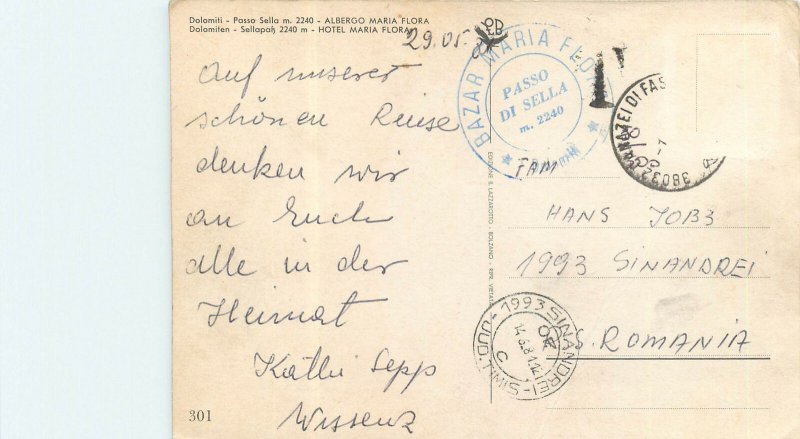 Dolomiti - Passo Sella m. 2240 - ALBERGO MARIA FLORA
Dolomiten - Sellapaß 2240 m - HOTEL MARIA FLORA
29.05.
Auf unserer
schönen Reise
denken wir
an Euch
alle in der
Heimat
Kathi Sepp
Wissenz
301
BAZAR MARIA FLORA
PASSO
DI SELLA
m. 2240
T
CANAZEI DI FAS
38032
EDIZIONE S. LAZZAROTTO BOLZANO - RIPR. VIETATA
FAM
HANS JOBZ
1993 SINANDREI
S. ROMANIA
1993 SINANDREI
JUD. TIMIȘ